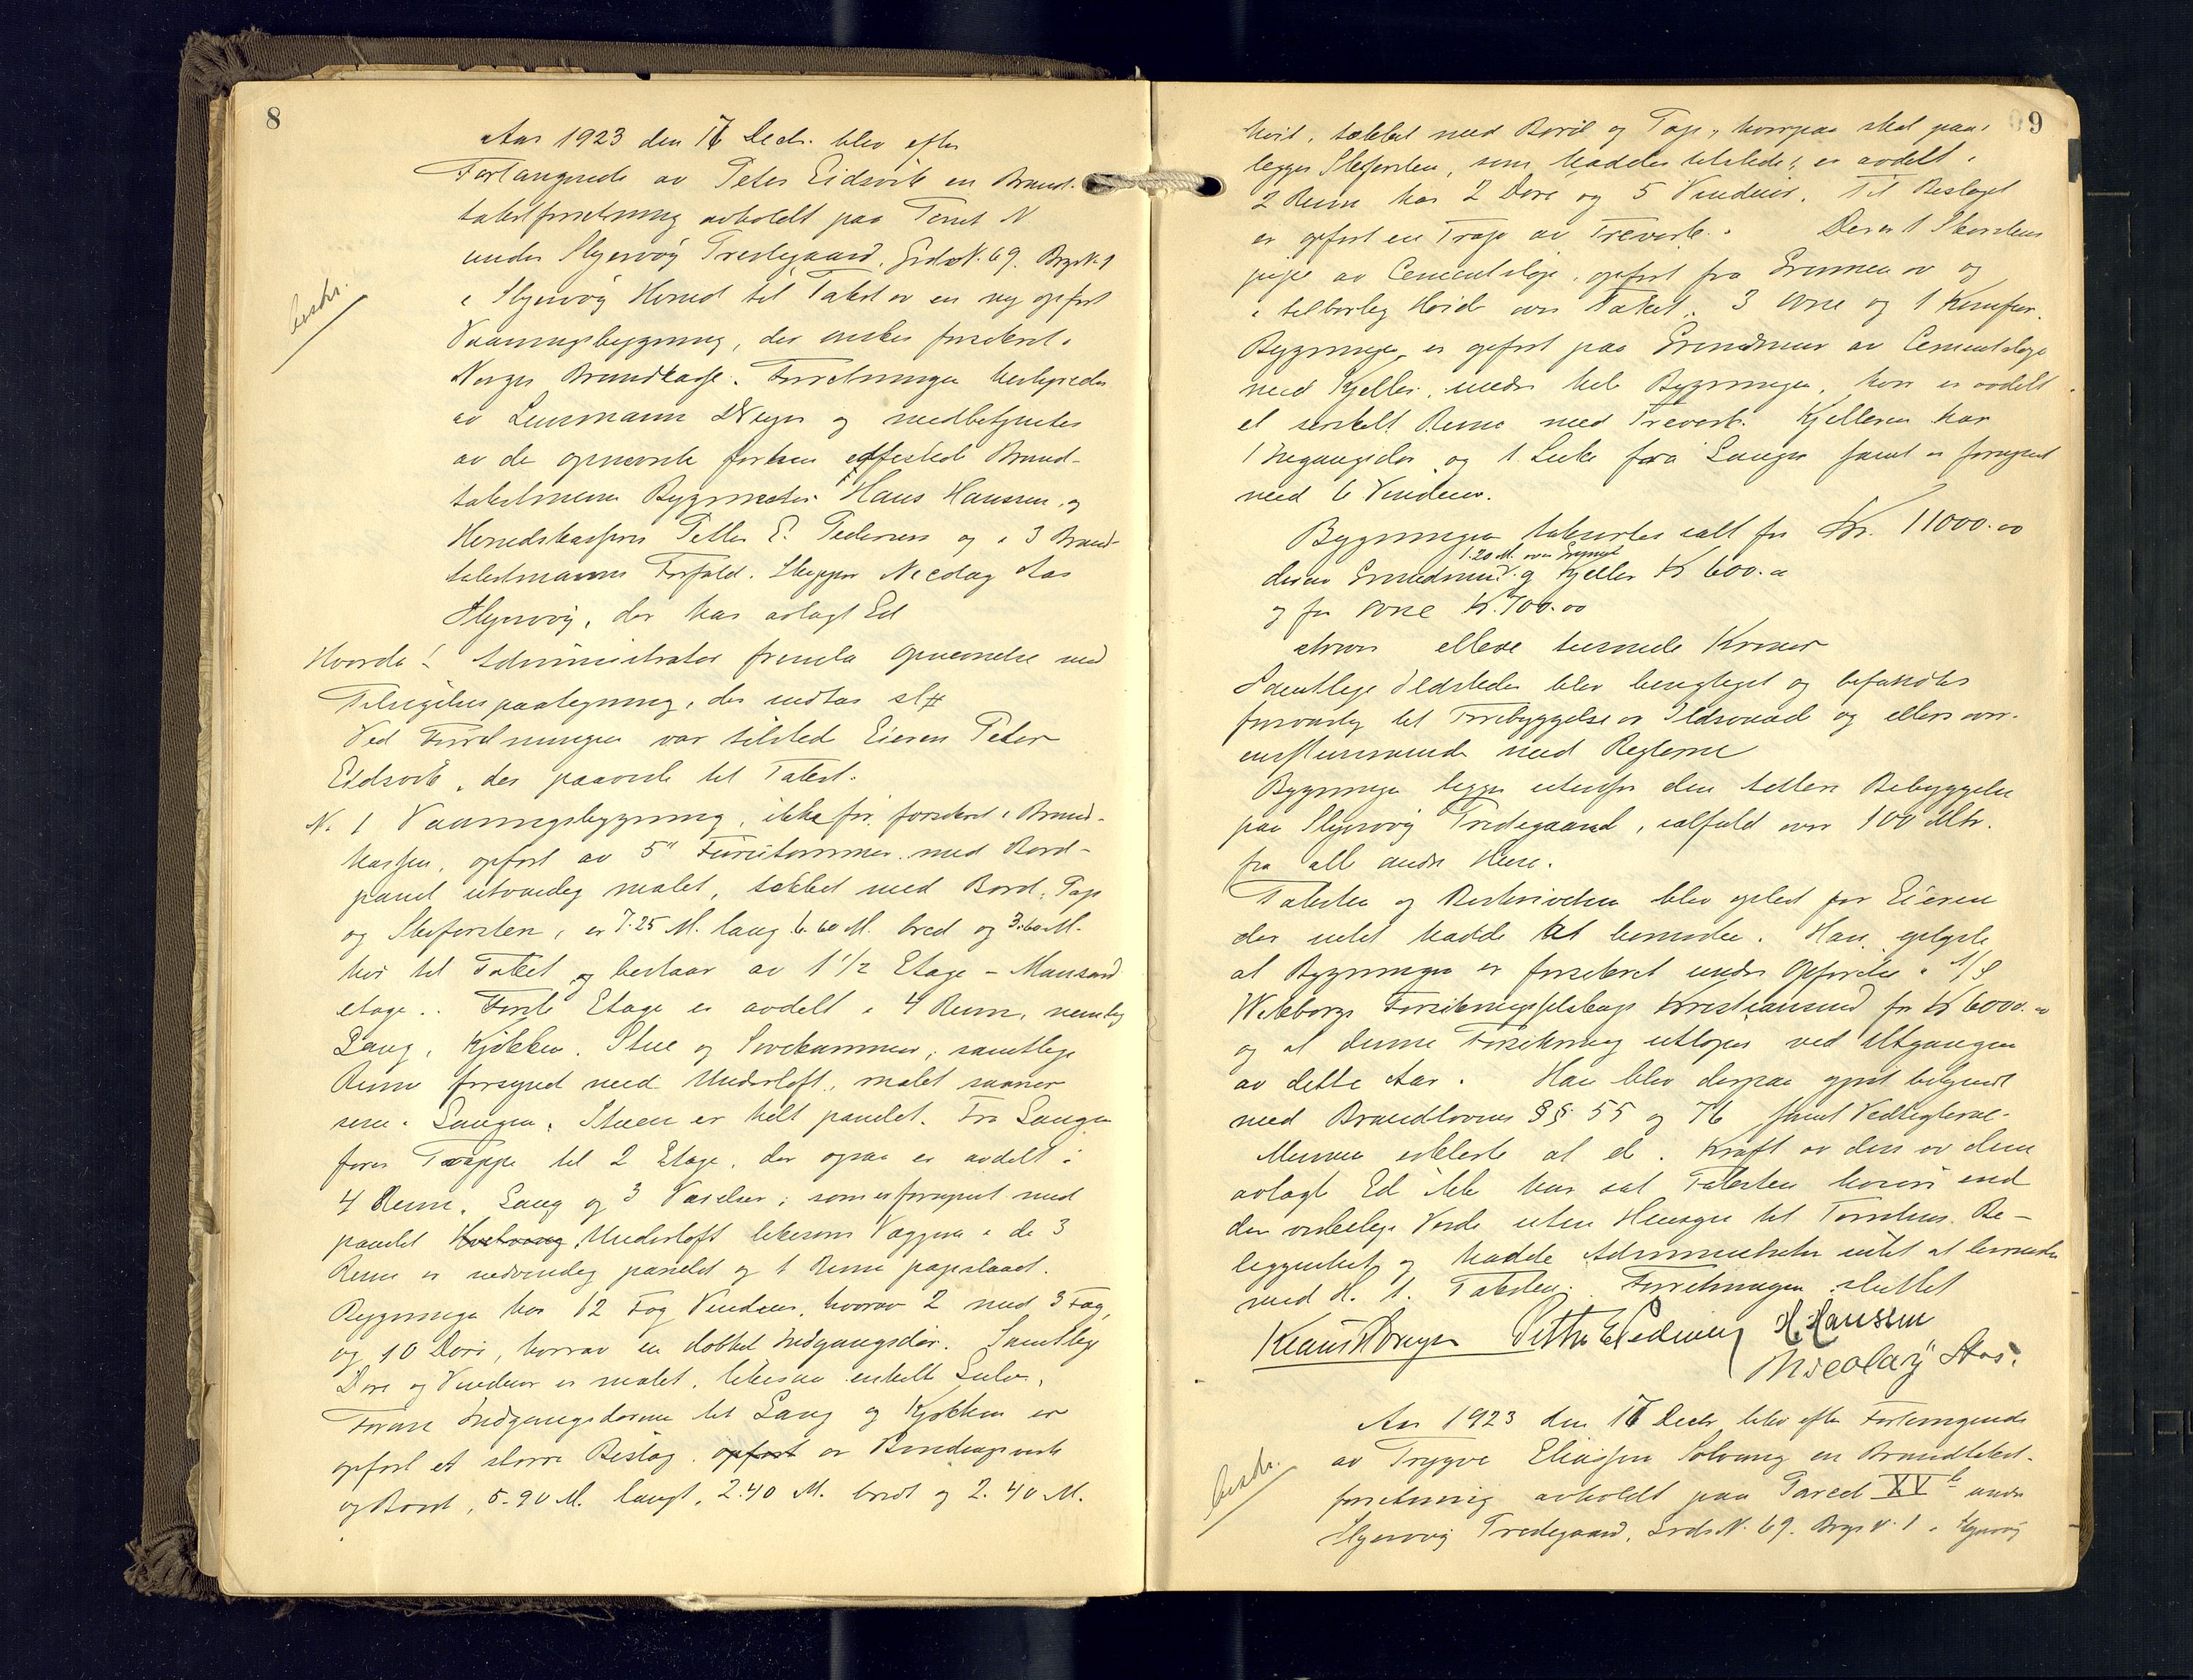 8
Aar 1923 den 17 Decbr. blev efter
Forlangende av Peter Eidsvik en Brand-
takstforretning avholdt paa Tomt N
under Skjervøy Prestegaard, Grds N. 69. Brgs N. 1
i Skjervøy Herred til Takst av en ny opført
Vaaningsbygning, der ønskes forsikret i
Norges Brandkasse. Forretningen bestyredes
av Lensmann Dreyer og medbetjentes
av de opnævnte forhen edfestede Brand-
takstmenn Bygmester Hans Hanssen og
Herredskasserer Petter E. Pedersen og i 3 Brand-
takstmanns Forfald. Skipper Nicolay Aas
Skjervøy, der har avlagt Ed
Hvorda! Administrator fremla Opnævnelse med
Tilsigelsespaategning, der indtas slt
Ved Forretningen var tilsted Eieren Peter
Eidsvik, der paaviste til Takst.
N. 1 Vaaningsbygning, ikke før forsikret i Brand-
kassen, opført av 5" Furutømmer med Bord-
panel utvendig malet, tækket med Bord, Pap
og Skifersten, er 7.25 M. lang 6.60 M. bred og 3.60 M.
høi til Taket og bestaar av 1 1/2 Etage - Mansard
etage. Første Etage er avdelt i 4 Rum, nemlig
Gang, Kjøkken, Stue og Sovekammer, samtlige
Rum forsynet med Underloft, malet
Gangen, Stuen er helt panelet. Fra Gangen
fører Trappe til 2 Etage, der ogsaa er avdelt i
4 Rum, Gang og 3 Værelser, som er forsynet med
panelet Underloft likesom Væggene i de 3
Rum er indvendig panelet og 1 Rum papslaaet.
Bygningen har 12 Fag Vinduer, hvorav 2 med 3 Fag,
og 10 Døre, hvorav en dobbel Indgangsdør. Samtlige
Døre og Vinduer er malet, likesaa enkelte Gulv.
Foran Indgangsdørene til Gang og Kjøkken er
opført et større Bislag opført av Bindingsverk
og Bord, 5.90 M. langt, 2.40 M. bredt og 2.40 M.
bestr.
9
høit, tækket med Bord og Pap, hvorpaa skal paa-
legges Skifersten, som hadde tilstede, er avdelt i
2 Rum har 2 Døre og 5 Vinduer. Til Bislaget
er opført en Trap av Træverk. Der er 1 Skorstens
pipe av Cementstøp, opført fra Grunnen av og
i tilbørlig Høide over Taket. 3 Ovne og 1 Komfur.
Bygningen er opført paa Grundmur av Cementstøp
med Kjelder under hele Bygningen, hvor er avdelt
et særskilt Rum med Træverk. Kjelleren har
1 Indgangsdør og 1 Luke fra Gangen samt er forsynet
med 6 Vinduer.
Bygningen taksertes ialt for Kr. 11000.00
1.20 M. over
derav Grundmur og Kjeller Kr 600.00
og for Ovne Kr. 700.00
skriver elleve tusende Kroner
Samtlige Ildsteder blev besigtiget og befandtes
forsvarlig til Forebyggelse av Ildsvaade og ellers over-
ensstemmende med Reglerne
Bygningen ligger utenfor den tættere Bebyggelse
paa Skjervøy Prestegaard, ialfald over 100 Mtr.
fra alle andre Huse.
Taksten og Beskrivelsen blev oplæst for Eieren
der intet hadde at bemerke. Han oplyste
at Bygningen er forsikret under Opførelse i A/S
Forsikringsselskap Kristiansund for Kr 6000.00
og at denne Forsikring utløper ved Utgangen
av dette Aar. Han blev derpaa gjort bekjendt
med Brandlovens §§ 55 og 76 samt Vedtægterne.
Mennene erklærte at de i Kraft av den av dem
avlagte Ed ikke har sat Taksten høiere end
den virkelige Verdi uten Hensyn til Tomtens Be-
liggenhet og hadde Administrator intet at bemerke
med H. t. Taksten. Forretningen sluttet
Klaus Dreyer Petter E Pedersen H. Hanssen
Nicolay Aas.
Aar 1923 den 17 Decbr. blev efter Forlangende
av Trygve Eliassen Solvang en Brandtakst-
forretning avholdt paa Parcel XV under
Skjervøy Prestegaard, Grds N. 69. Brgs N. 1 i Skjervøy
bestr.